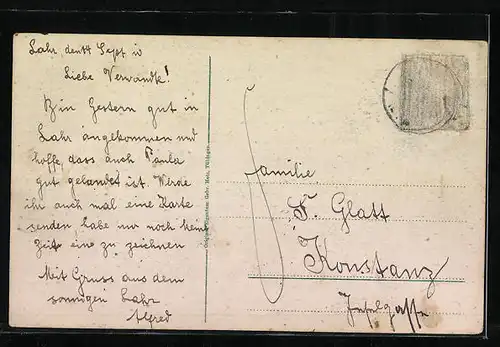 Lahr, den 14 Sept 10
Liebe Verwandte!
Bin Gestern gut in
Lahr angekommen und
hoffe, dass auch Paula
gut gelandet ist. Werde
ihr auch mal eine Karte
senden habe nur noch keine
Zeit eine zu zeichnen
Mit Gruss aus dem
sonnigen Lahr
Alfred
Gebr. Metz, Tübingen
Familie
F. Glatt
Konstanz
Inselgasse